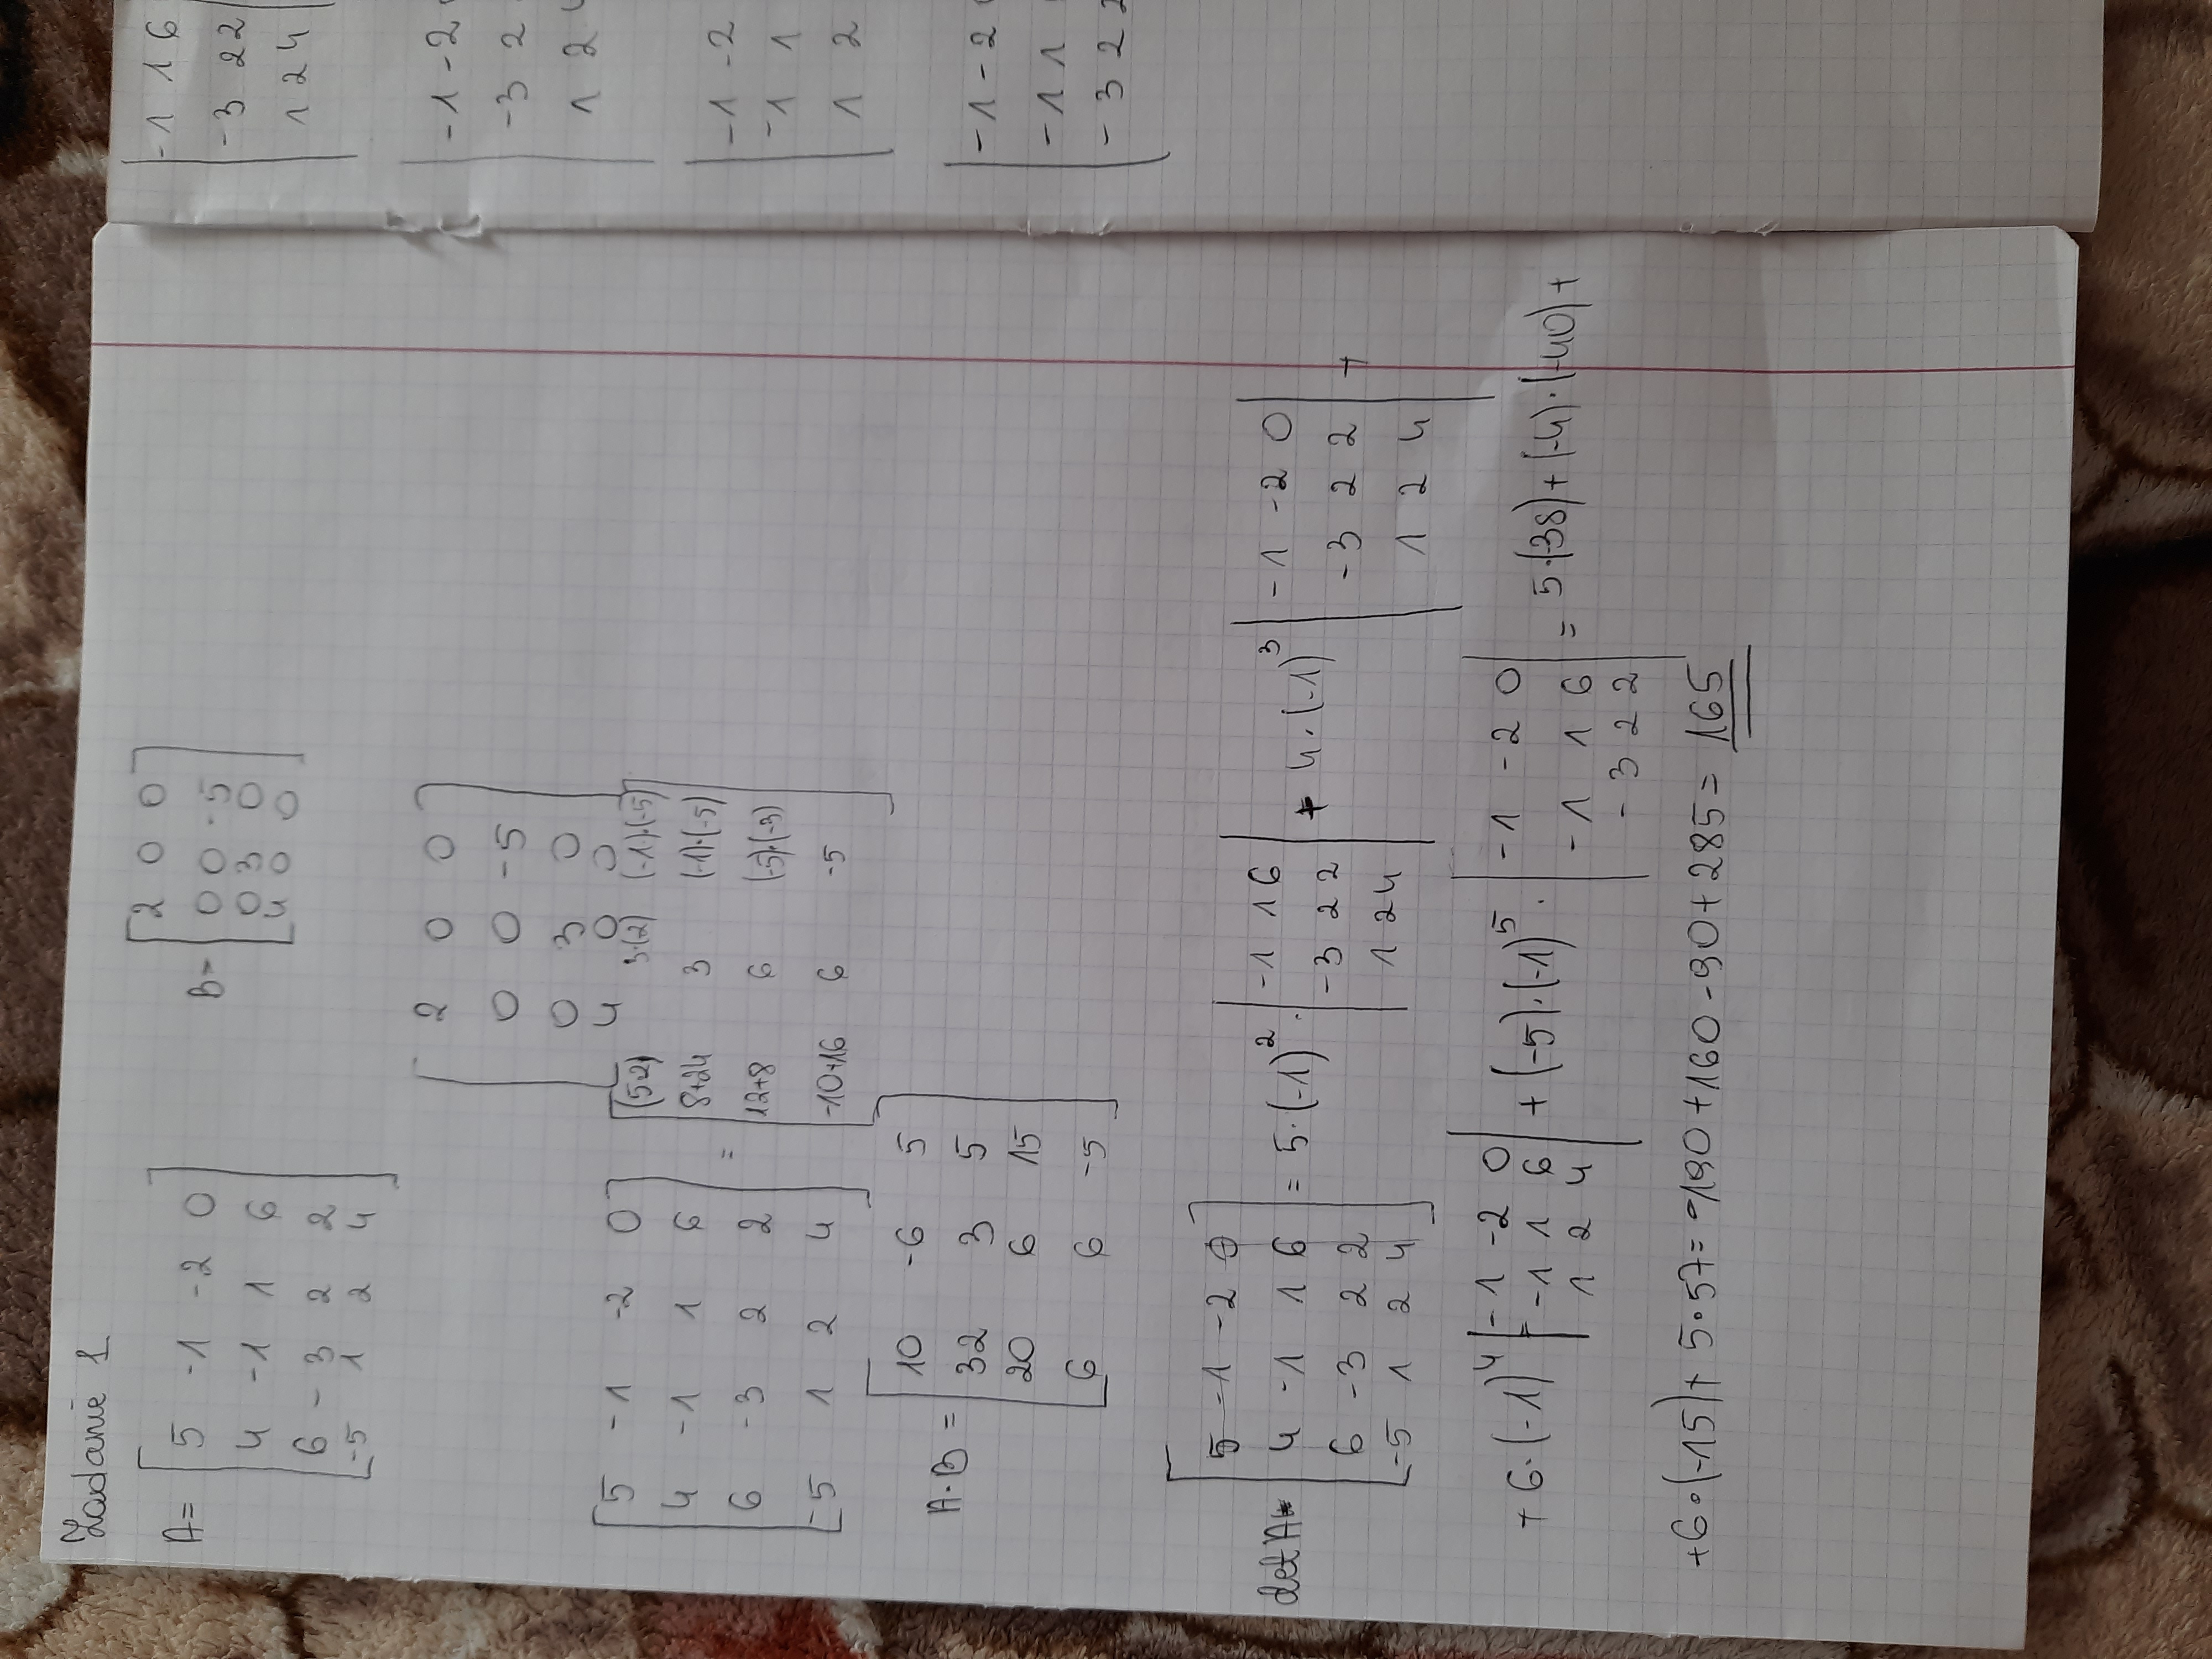 Zadanie 1
A= [ 5 -1 -2 0
4 -1 1 6
6 -3 2 2
-5 1 2 4 ]
B= [ 2 0 0
0 0 -5
0 3 0
4 0 0 ]
[ 2 0 0
0 0 -5
0 3 0
4 0 0 ]
[ 5 -1 -2 0
4 -1 1 6
6 -3 2 2
-5 1 2 4 ]
=
[ (5·2) 3·(2) (-1)·(-5)
8+24 3 (-1)·(-5)
12+8 6 (-5)·(-3)
-10+16 6 -5 ]
A·B = [ 10 -6 5
32 3 5
20 6 15
6 6 -5 ]
det A= [ 5 -1 -2 0
4 -1 1 6
6 -3 2 2
-5 1 2 4 ]
= 5·(-1)² · | -1 1 6
-3 2 2
1 2 4 |
+ 4·(-1)³ | -1 -2 0
-3 2 2
1 2 4 | +
+ 6·(-1)⁴ | -1 -2 0
-1 1 6
1 2 4 |
+ (-5)·(-1)⁵ · | -1 -2 0
-1 1 6
-3 2 2 |
= 5·(-38) + (-4)·(-40) +
+6·(-15)+ 5·57= -190 +160 -90 + 285= 165
| -1 1 6
-3 2 2
1 2 4 |
| -1 -2
-3 2
1 2
| -1 -2
-1 1
1 2
| -1 -2
-1 1
-3 2 2